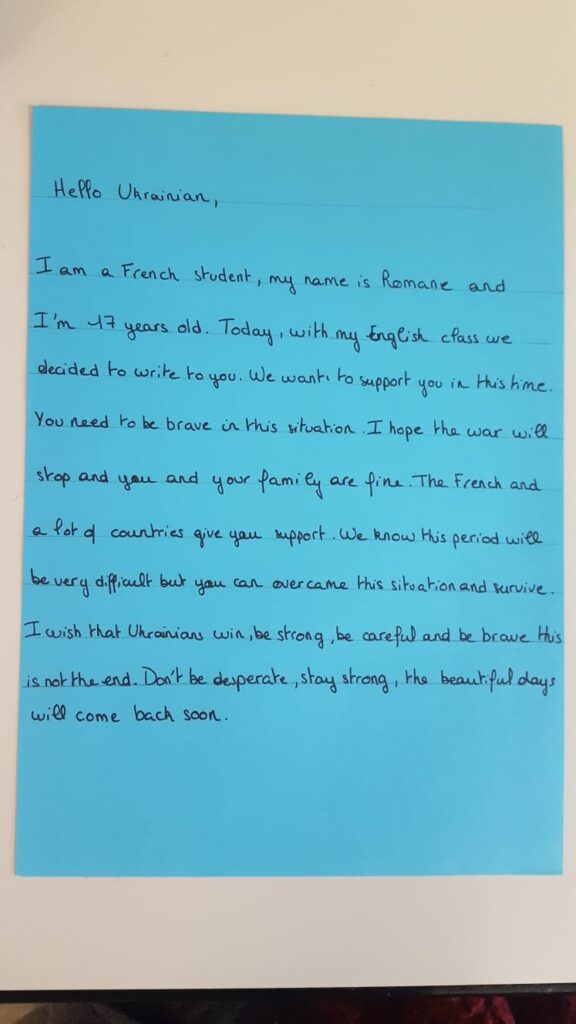 Hello Ukrainian,
I am a French student, my name is Romane and
I'm 17 years old. Today, with my English class we
decided to write to you. We want to support you in this time.
You need to be brave in this situation. I hope the war will
stop and you and your family are fine. The French and
a lot of countries give you support. We know this period will
be very difficult but you can overcame this situation and survive.
I wish that Ukrainians win, be strong, be careful and be brave this
is not the end. Don't be desperate, stay strong, the beautiful days
will come back soon.